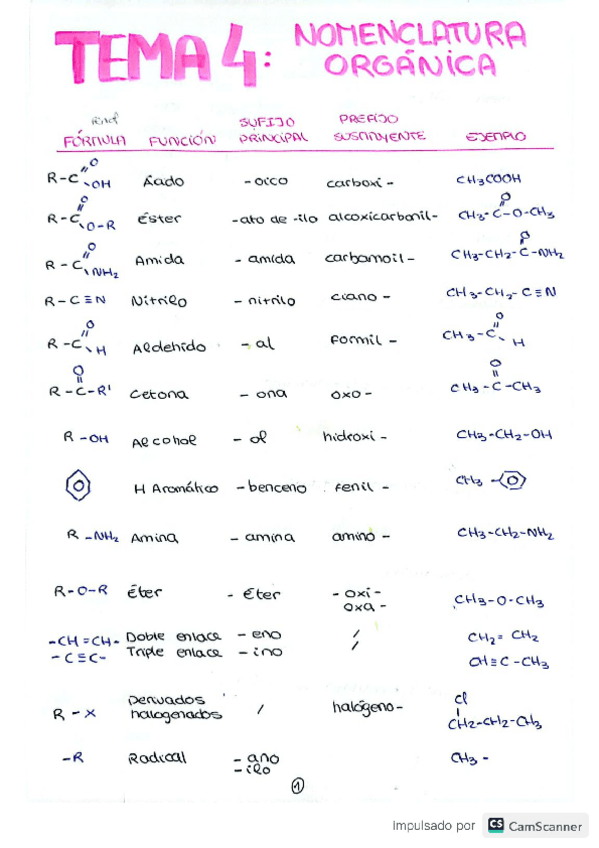 TEMA 4: NOMENCLATURA ORGÁNICA
FÓRMULA FUNCIÓN SUFIJO PRINCIPAL PREFIJO SUSTITUYENTE EJEMPLO
R-C=O OH Ácido -oico carboxi- CH3COOH
R-C=O O-R Éster -ato de -ilo alcoxicarbonil- CH3-C=O-O-CH3
R-C=O NH2 Amida -amida carbamoil- CH3-CH2-C=O-NH2
R-C≡N Nitrilo -nitrilo ciano- CH3-CH2-C≡N
R-C=O H Aldehido -al formil- CH3-C=O H
R-C=O-R' Cetona -ona oxo- CH3-C=O-CH3
R-OH Alcohol -ol hidroxi- CH3-CH2-OH
H Aromático -benceno fenil- CH3-
R-NH2 Amina -amina amino- CH3-CH2-NH2
R-O-R Éter -Éter -oxi- oxa- CH3-O-CH3
-CH=CH- Doble enlace -eno / CH2=CH2
-C≡C- Triple enlace -ino / CH≡C-CH3
R-X Derivados halogenados / halógeno- Cl CH2-CH2-CH3
-R Radical -ano -ilo CH3-
1
Impulsado por CS CamScanner